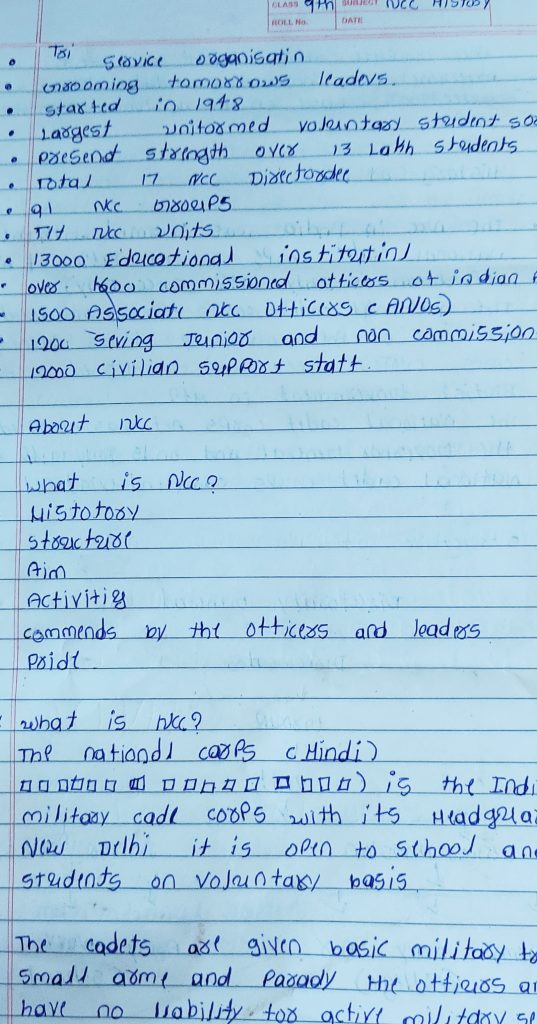 CLASS 9th SUBJECT NCC HISTORY
ROLL No. DATE
Tri Service organisatin
Grooming tomorrows leaders.
started in 1948
Largest uniformed voluntary student
presend strength over 13 Lakh students
Total 17 NCC Directordee
91 NCC Groups
NCC Units
13000 Educational institutinl
over 1600 commissioned officers of indian
1500 Associate NCC Officers (ANOs)
1200 Seving Junior and non commission
12000 civilian support staff.
About NCC
What is NCC?
Histotory
structure
Aim
Activities
commends by the officers and leaders
Pride
what is NCC?
The nationdl corps (Hindi)
□□□□□□ □ □□□□□ □ □□□) is the Indi
military cade corps with its Headqua
New Delhi it is open to school an
students on voluntary basis
The cadets are given basic military tr
Small arme and Parady the officers ar
have no liability for active military se